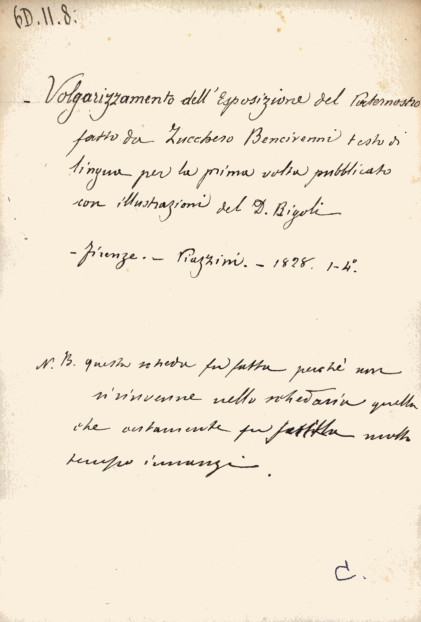 6D. 11. 8:
- Volgarizzamento dell'Esposizione del Paternostro
fatto da Zucchero Bencivenni testo di
lingua per la prima volta pubblicato
con illustrazioni del D. Rigoli
- Firenze. - Piazzini. - 1828. 1-4°.
N. B. questa scheda fu fatta perchè non
si rinvenne nello schedario quella
che certamente fu molto
tempo innanzi.
C.